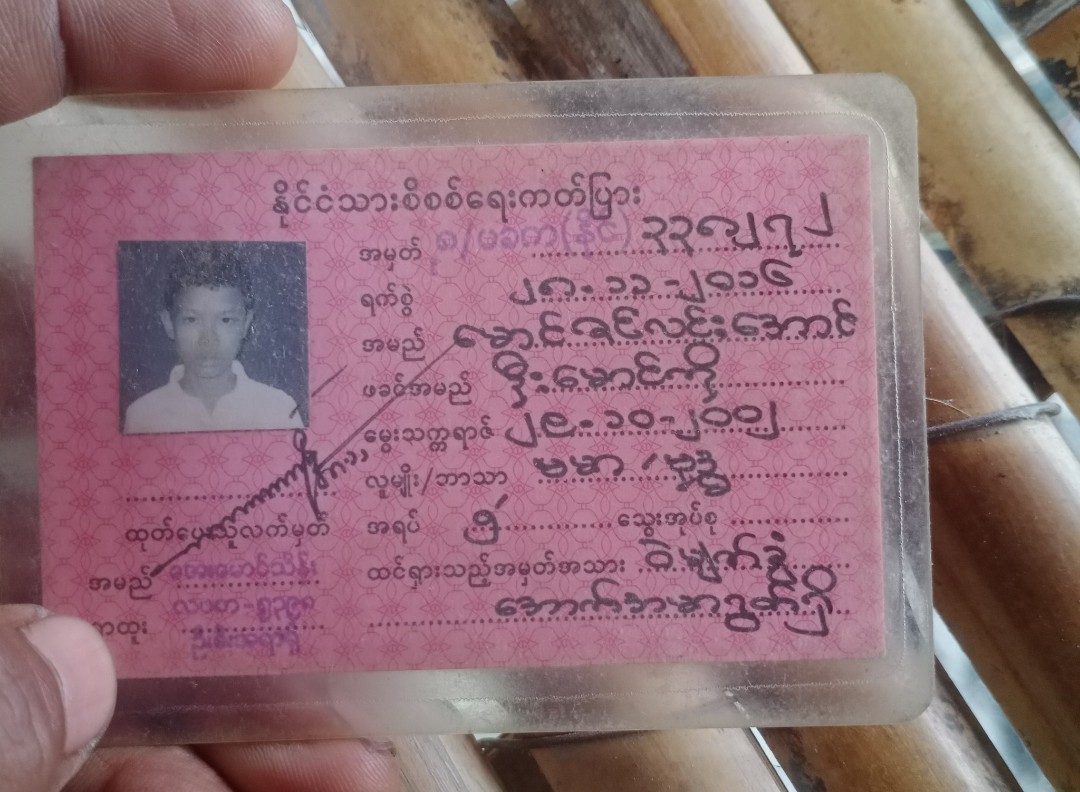 နိုင်ငံသားစိစစ်ရေးကတ်ပြား
အမှတ် ၈/မခက(နိုင်) ၃၃၈၂၇၂
ရက်စွဲ ၂၈-၁၁-၂၀၁၆
အမည် မောင်ဇင်လင်းအောင်
ဖခင်အမည် ဦးမောင်ကို
မွေးသက္ကရာဇ် ၂၉-၁၀-၂၀၀၂
လူမျိုး/ဘာသာ ဗမာ/ဗုဒ္ဓ
အရပ် ၅' သွေးအုပ်စု
ထင်ရှားသည့်အမှတ်အသား ဝဲမျက်ခုံး
အောက်အမာရွတ်ရှိ
ထုတ်ပေးသူလက်မှတ်
အမည် အေးမောင်သိန်း
လဝက-
ဦးစီးအရာရှိ